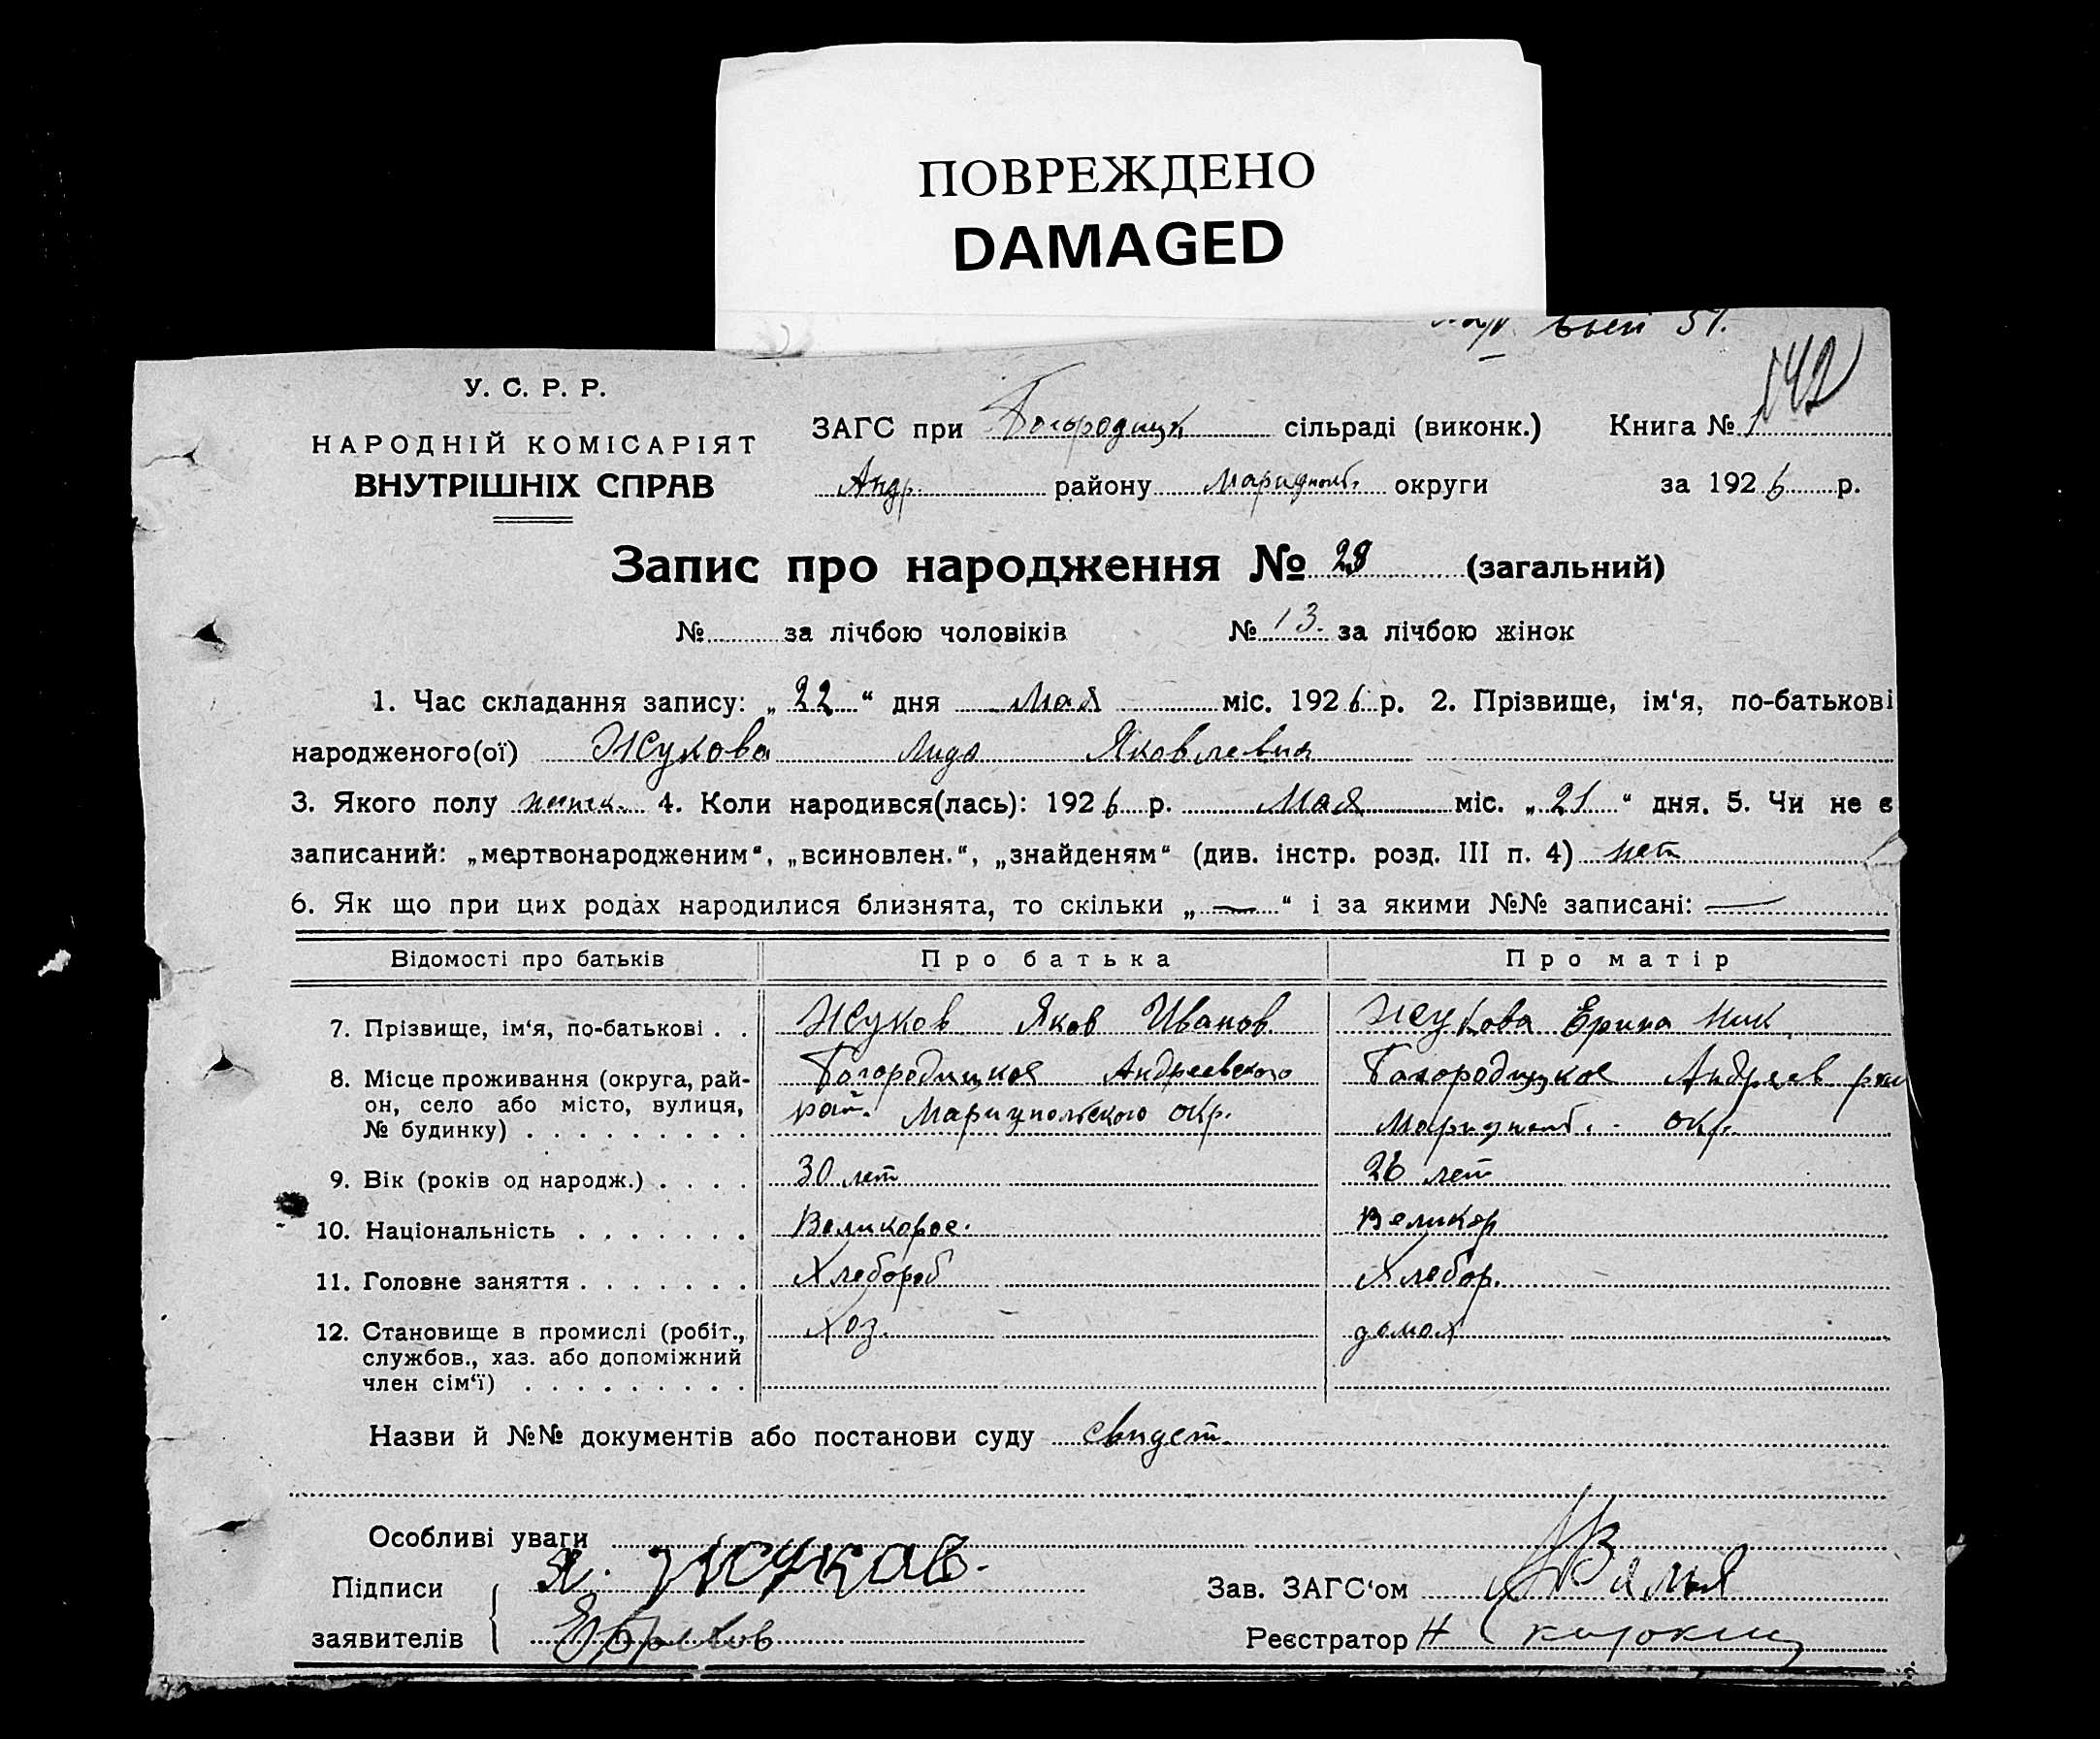 ПОВРЕЖДЕНО
DAMAGED
142
У. С. Р. Р.
НАРОДНІЙ КОМІСАРІЯТ
ВНУТРІШНІХ СПРАВ
ЗАГС при Богородицк сільраді (виконк.) Книга № 1
Андр. району Мариупольс. округи за 1926 р.
Запис про народження № 28 (загальний)
№ за лічбою чоловіків № 13. за лічбою жінок
1. Час складання запису: „22“ дня Мая міс. 1926 р. 2. Прізвище, ім‘я, по-батькові
народженого(ої) Жукова Лида Яковлевна
3. Якого полу женск. 4. Коли народився(лась): 1926 р. Мая міс. „21“ дня. 5. Чи не є
записаний: „мертвонародженим“, „всиновлен.“, „знайденям“ (див. інстр. розд. III п. 4) нет
6. Як що при цих родах народилися близнята, то скільки „—“ і за якими №№ записані: —
Відомості про батьків Про батька Про матір
7. Прізвище, ім‘я, по-батькові . . Жуков Яков Иванов Жукова Ерина Ник
8. Місце проживання (округа, рай-
он, село або місто, вулиця,
№ будинку) . . . . . . . . .
Богородицкое Андреевского
рай. Мариупольского окр.
Богородицкое Андреев
окр.
9. Вік (років од народж.) . . . . 30 лет 26 лет
10. Національність . . . . . . . Великорос. Великор
11. Головне заняття . . . . . . . Хлебороб Хлебор.
12. Становище в промислі (робіт.,
службов., хаз. або допоміжний
член сім‘ї) . . . . . . . . .
Хоз. домох
Назви й №№ документів або постанови суду свидет.
Особливі уваги
Підписи
заявителів
Я. Жуков.
Зав. ЗАГС‘ом
Реєстратор Н